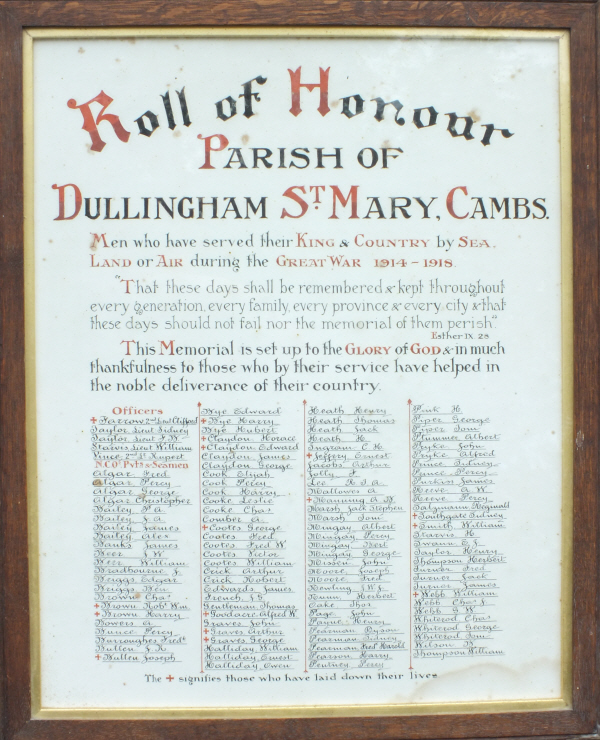 Roll of Honour
PARISH OF
DULLINGHAM ST MARY, CAMBS.
Men who have served their KING & COUNTRY by SEA,
LAND or AIR during the GREAT WAR 1914-1918.
"That these days shall be remembered & kept throughout
every generation, every family, every province & every city & that
these days should not fail nor the memorial of them perish."
Esther IX 28
This Memorial is set up to the GLORY of GOD & in much
thankfulness to those who by their service have helped in
the noble deliverance of their country.
Officers
+ Farrow 2nd Lieut Clifford
Taylor Lieut Sidney
Taylor Lieut F. W.
Starvis Lieut William
Vince 2nd Lt Rupert
N.C.Os Pvts & Seamen
Algar Fred
Algar Percy
Algar George
Algar Christopher
Bailey P. A.
Bailey J. A.
Bailey James
Bailey Alex
Banks James
Beer J. W.
Beer William
Bradbourne J.
Briggs Edgar
Briggs Ben
Brown Chas
+ Brown Robt Wm
+ Brown Harry
Bowers A.
Bunce Percy
Burroughes Fredk
Bullen J. K.
+ Bullen Joseph
Bye Edward
+ Bye Harry
Bye Hubert
+ Claydon Horace
+ Claydon Edward
Claydon James
Claydon George
Cook Elijah
Cook Percy
Cook Harry
Cooke Leslie
Cooke Chas
Comber A.
+ Cootes George
Cootes Fred
Cootes Fred W
Cootes Victor
Cootes William
Crick Arthur
Crick Robert
Edwards James
French J. S.
Gentleman Thomas
+ Goodacre Alfred W.
Graves John
+ Graves Arthur
+ Graves George
Halliday William
Halliday Ernest
Halliday Owen
Heath Henry
Heath Thomas
Heath Jack
Heath H.
Ingram C. H.
+ Jeffery Ernest
Jacobs Arthur
Jolly F.
Lee R. A.
Mallows A.
+ Manning A. W.
Marsh Jack Stephen
Marsh Tom
Mingay Albert
Mingay Percy
Mingay Bert
Mingay George
Missen John
Moore Joseph
Moore Fred
Newling J. W.
Nunn Herbert
Oake Thos
Page John
Payne Henry
Pearman Dyson
Pearman Sidney
Pearman Fred Harold
Pearson Harry
Pentney Percy
Pink H.
Piper George
Piper Tom
Plummer Albert
Pryke John
Pryke Alfred
Prince Sidney
Prince Percy
Purkiss James
Reeve A. W.
Reeve Percy
Salzmann Reginald
+ Southgate Sidney
+ Smith William
Starvis H.
Swann E. J.
Taylor Henry
Thompson Herbert
Turner Fred
Turner Jack
Turner James
+ Webb William
Webb Chas J.
Webb G. W.
Whiterod Chas
Whiterod George
Whiterod Tom
Wilson B.
Thompson William
The + signifies those who have laid down their lives